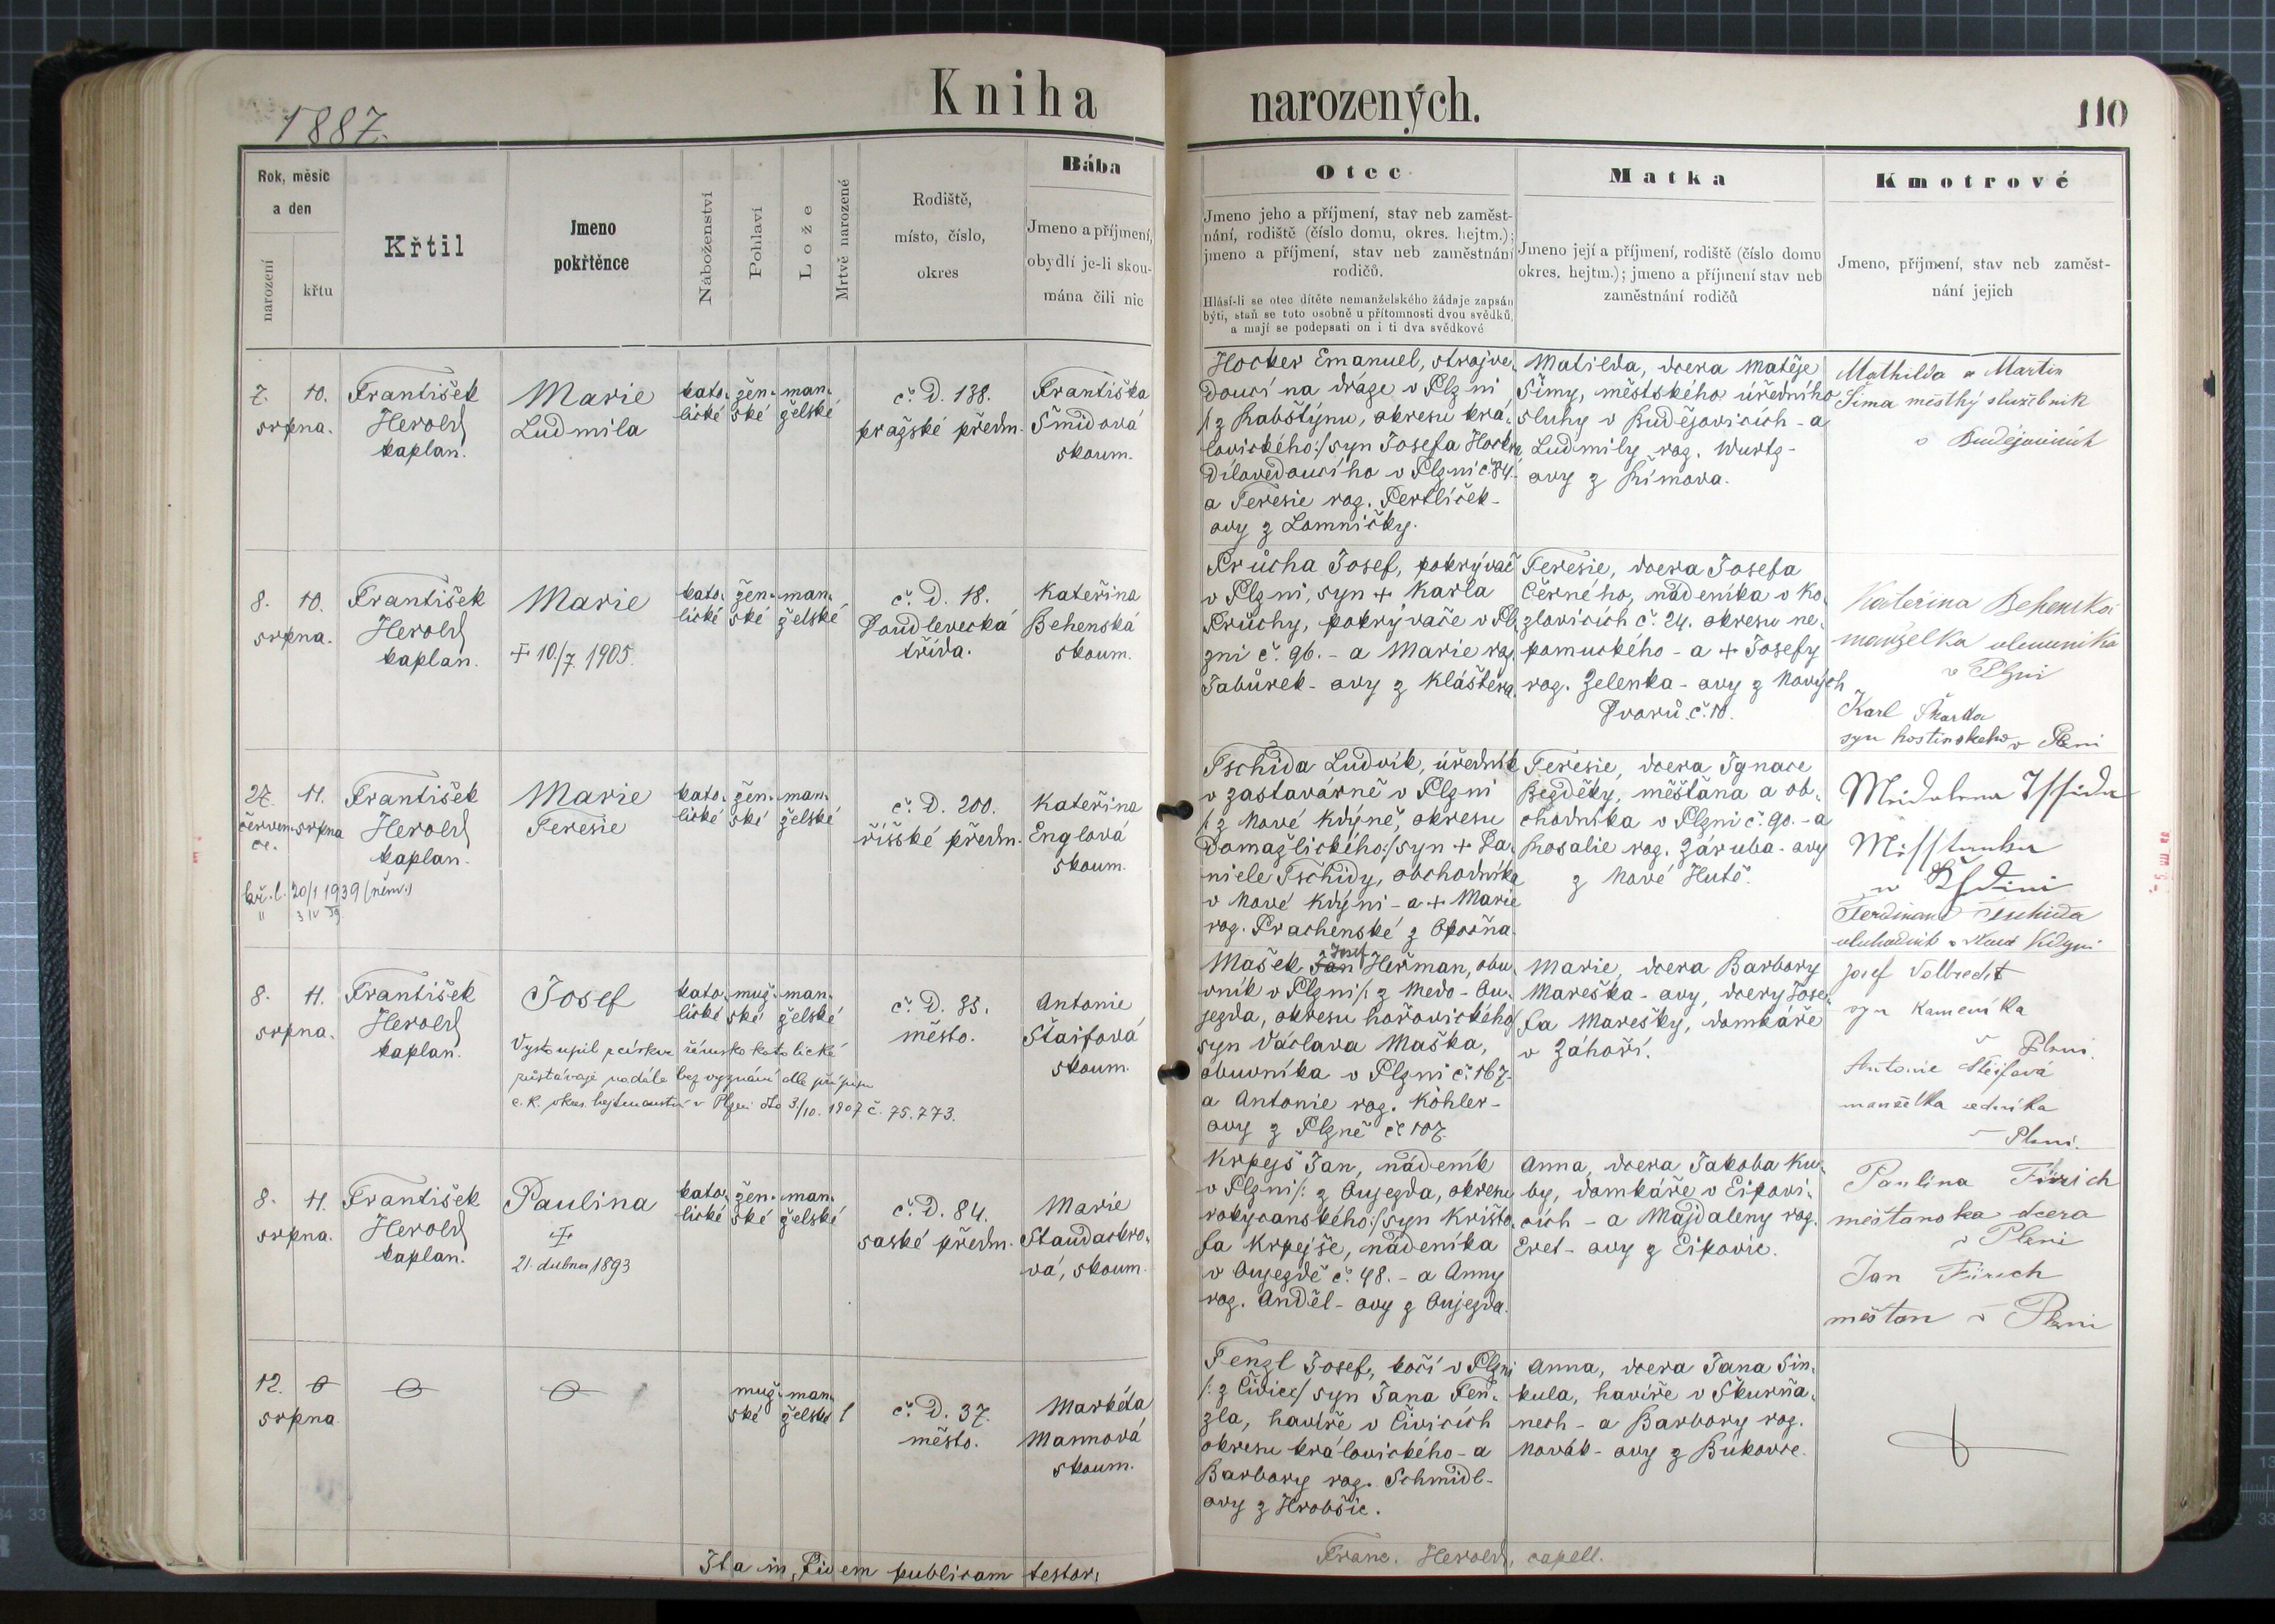 1887.
Kniha
narozených.
110
Rok, měsíc
a den
narození
křtu
Křtil
Jmeno
pokřtěnce
Náboženství
Pohlaví
Lože
Mrtvě narozené
Rodiště,
místo, číslo,
okres
Bába
Jmeno a příjmení,
obydlí je-li skou-
mána čili nic
Otec
Jmeno jeho a příjmení, stav neb zaměst-
nání, rodiště (číslo domu, okres. hejtm.);
jmeno a příjmení, stav neb zaměstnání
rodičů.
Hlásí-li se otec dítěte nemanželského žádaje zapsán
býti, staň se toto osobně u přítomnosti dvou svědků,
a mají se podepsati on i ti dva svědkové
Matka
Jmeno její a příjmení, rodiště (číslo domu
okres. hejtm.); jmeno a příjmení stav neb
zaměstnání rodičů
Kmotrové
Jmeno, příjmení, stav neb zaměst-
nání jejich
7. 10.
srpna.
František
Herold
kaplan.
Marie
Ludmila
kato-
lické
žen-
ské
man-
želské
č. D. 138.
pražské předm.
Františka
Šmidová
skoum.
Hocker Emanuel, strojve-
doucí na dráze v Plzni
/:z Rabštýnu, okresu krá-
lovického:/ syn Josefa Hockra,
dílovedoucího v Plzni č. 84.-
a Teresie roz. Pertlíček-
ovy z Lomničky.
Matilda, dcera Matěje
Šímy, městského úředního
sluhy v Budějovicích - a
Ludmily roz. Wurtz-
ovy z Římova.
Mathilda a Martin
Šíma městký služebník
v Budějovicích
8. 10.
srpna.
František
Herold
kaplan.
Marie
+ 10./7. 1905.
kato-
lické
žen-
ské
man-
želské
č. D. 18.
Doudlevecká
třída.
Kateřina
Behenská
skoum.
Průcha Josef, pokrývač
v Plzni, syn + Karla
Průchy, pokrývače v Pl-
zni č. 96. - a Marie roz.
Tabůrek-ovy z Kláštera.
Teresie, dcera Josefa
Černého, nádeníka v Ko-
zlovicích č. 24. okresu ne-
pomuckého - a + Josefy
roz. Zelenka-ovy z Nových
Dvorů č. 10.
Kateřina Behenská
manželka
v Plzni
Karl
syn hostinského v Plzni
27. 11.
červen- srpna
ce.
František
Herold
kaplan.
Marie
Teresie
kato-
lické
žen-
ské
man-
želské
č. D. 200.
říšské předm.
Kateřina
Englová
skoum.
kř. l. 20/1 1939 (něm.)
" 3 IV 39
Tschida Ludvík, úředník
v zastavárně v Plzni
/:z Nové Kdýně, okresu
Domažlického:/ syn + Da-
niele Tschidy, obchodníka
v Nové Kdýni - a + Marie
roz. Prachenské z Opočna.
Teresie, dcera Ignace
Bezděky, měšťana a ob-
chodníka v Plzni č. 90. - a
Rosalie roz. Záruba-ovy
z Nové Hutě.
Ferdinand Tschida
obchodník v Nové Kdyni
8. 11.
srpna.
František
Herold
kaplan.
Josef
kato-
lické
muž-
ské
man-
želské
č. D. 33.
město.
Antonie
Štaifová
skoum.
Vystoupil z církve římsko katolické
zůstávaje nadále bez vyznání dle přípisu
c. k. okres. hejtmanství v Plzni dto 3/10. 1907 č. 75.773.
Josef
Mašek Jan Heřman, obu-
vník v Plzni /: z Medo-Ou-
jezda, okresu hořovického/
syn Václava Maška,
obuvníka v Plzni č. 167.-
a Antonie roz. Köhler-
ovy z Plzně č. 107.
Marie, dcera Barbory
Mareška-ovy, dcery Jose-
fa Marešky, domkáře
v Záhoří.
Josef
syn kameníka
v Plzni.
Antonie Štéifová
manželka
v Plzni.
8. 11.
srpna.
František
Herold
kaplan.
Paulina
+
21. dubna 1893
kato-
lické
žen-
ské
man-
želské
č. D. 84.
saské předm.
Marie
Štandackro-
vá, skoum.
Krpejš Jan, nádeník
v Plzni /: z Oujezda, okresu
rokycanského:/ syn Krišto-
fa Krpejše, nádeníka
v Oujezdě č. 48. - a Anny
roz. Anděl-ovy z Oujezda.
Anna, dcera Jakoba Ku-
by, domkáře v Ejpovi-
cích - a Majdaleny roz.
Eret-ovy z Ejpovic.
Paulina Fürich
měšťanska dcera
v Plzni
Jan Fürich
měštan v Plzni
12.
srpna.
muž-
ské
man-
želské
1
č. D. 37.
město.
Markéta
Mannová
skoum.
Fenzl Josef, kočí v Plzni
/:z Čivic:/ syn Jana Fen-
zla, havíře v Čivicích
okresu královického - a
Barbory roz. Schmidl-
ovy z Hrobšic.
Anna, dcera Jana Sin-
kula, havíře v Škurňa-
nech - a Barbory roz.
Novák-ovy z Bukovce.
Ita in Fidem publicam testor:
Franc. Herold, capell.